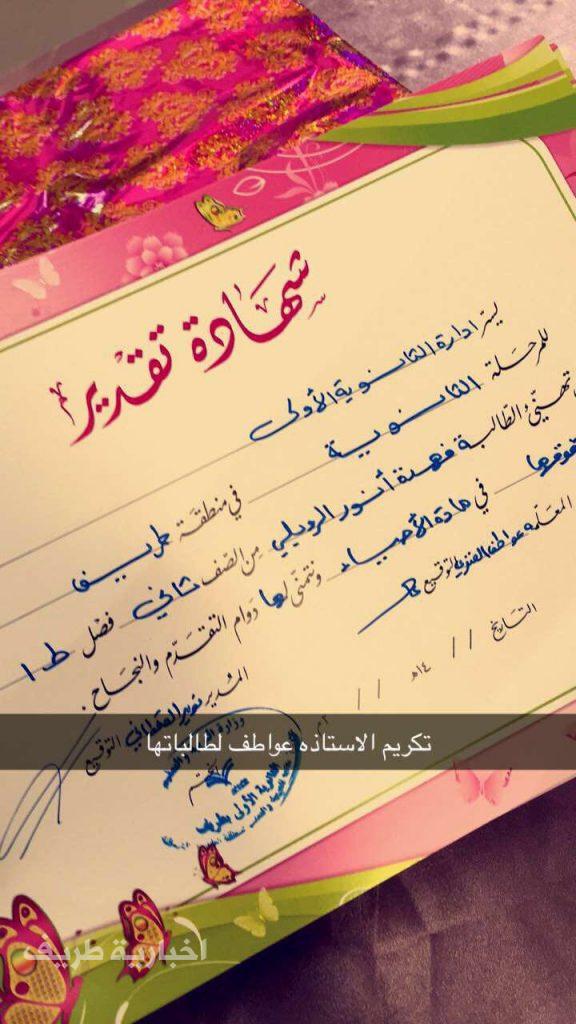 شهادة تقدير
يسر ادارة الثانوية الأولى
للمرحلة الثانوية في منطقة طريف
تهنئ الطالبة فهدة أنور الرويلي من الصف ثاني فصل ط ١
تفوقها في مادة الأحياء ونتمنى لها دوام التقدم والنجاح.
المعلمة عواطف العنزي التوقيع
المدير القحطاني التوقيع
التاريخ / / ١٤هـ / /
وزارة
الثانوية الأولى بطريف
تكريم الاستاذه عواطف لطالباتها
اخبارية طريف